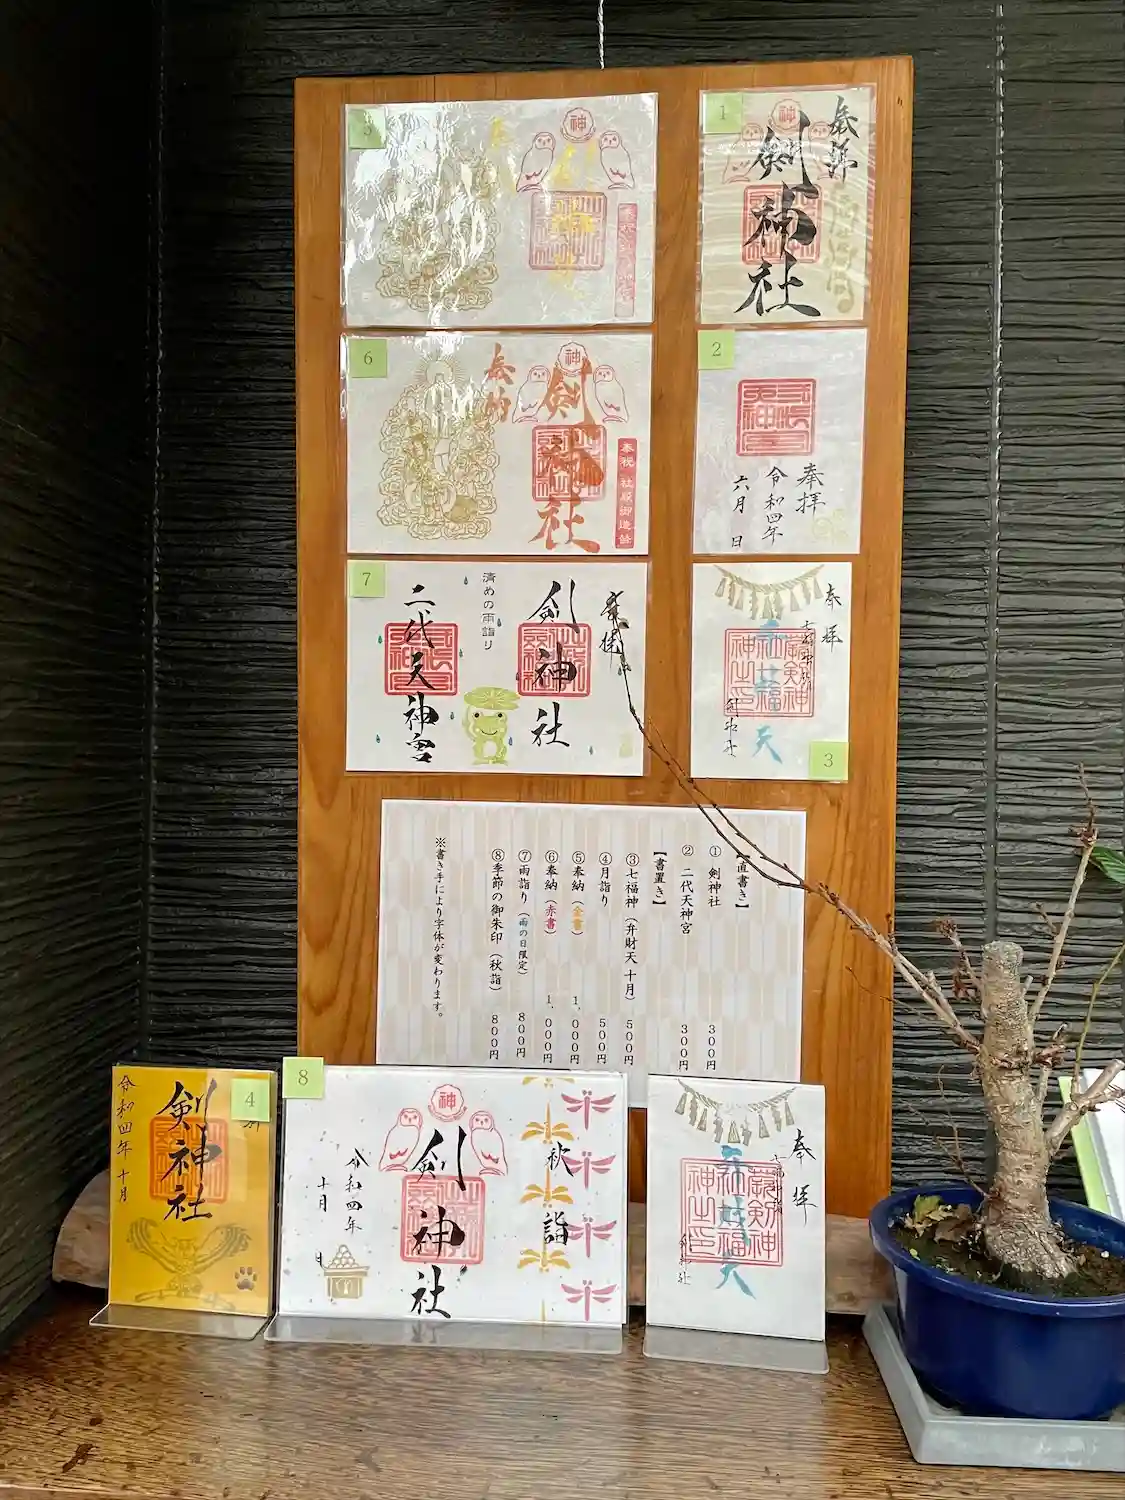 5
神
1
奉拝
剣神社
6
奉納
神
剣神社
奉祝 社殿御造営
2
奉拝
令和四年
六月 日
7
奉拝
剣神社
清めの雨詣り
二代天神宮
奉拝
七福神
弁財天
剣神社
3
【直書き】
① 剣神社 300円
② 二代天神宮 300円
【書置き】
③七福神(弁財天 十月) 500円
④月詣り 500円
⑤奉納(金書) 1、000円
⑥奉納(赤書) 1、000円
⑦雨詣り(雨の日限定) 800円
⑧季節の御朱印(秋詣) 800円
※書き手により字体が変わります。
4
剣神社
令和四年 十月
8
秋詣
神
剣神社
令和四年
十月 日
奉拝